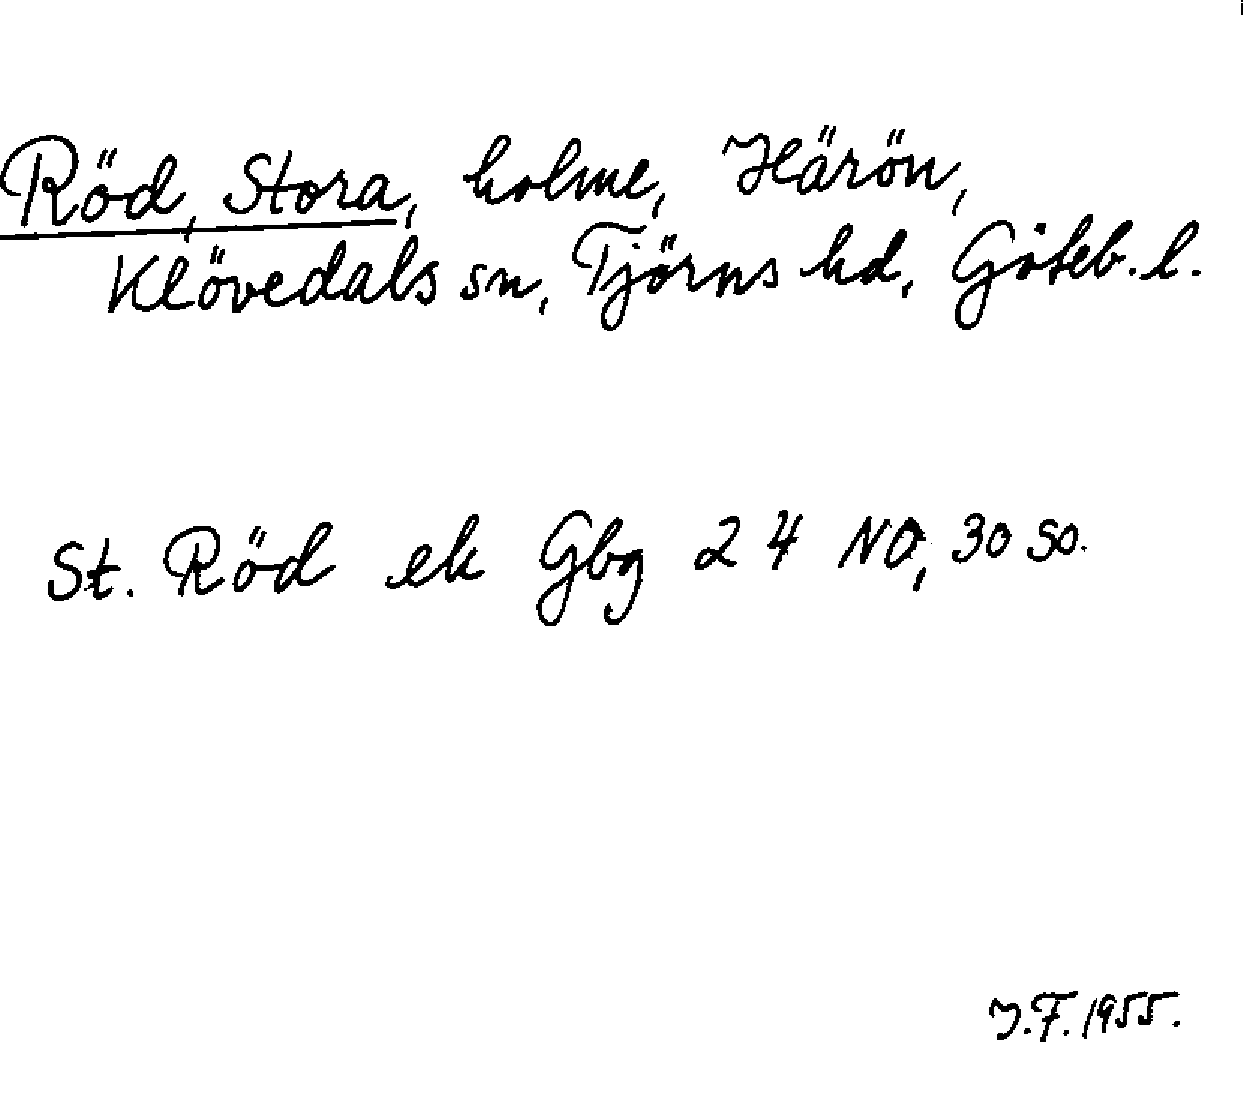 Röd, Stora, holme, Härön,
Klövedals sn, Tjörns hd, Göteb. l.
St. Röd ek Gbg 24 NO, 30 SO.
J.F. 1955.